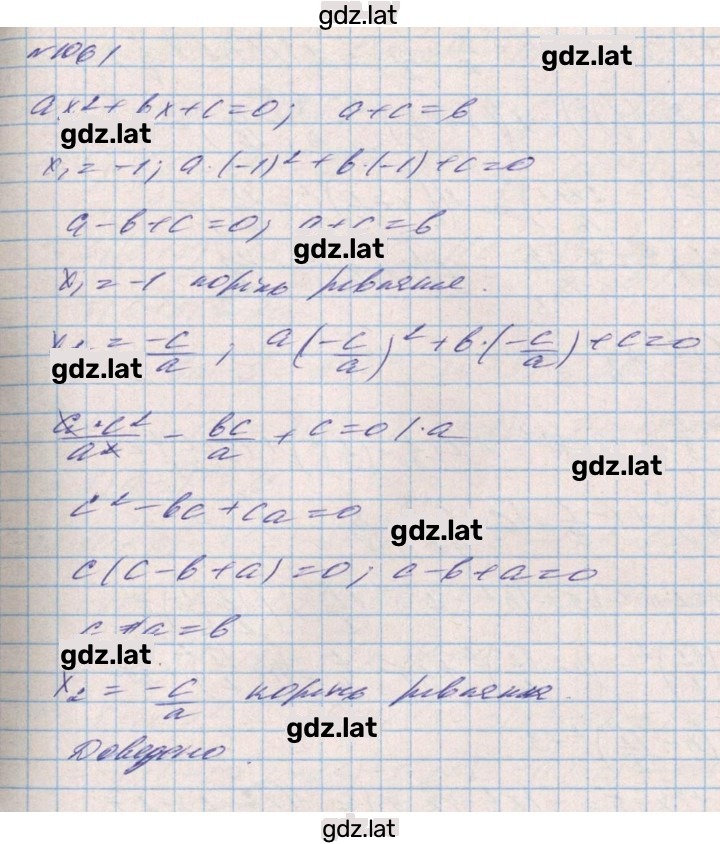 gdz.lat
№1061
gdz.lat
ax² + bx + c = 0; a + c = b
gdz.lat
x₁ = -1; a·(-1)² + b·(-1) + c = 0
a - b + c = 0; a + c = b
gdz.lat
x₁ = -1 корінь рівняння.
x₂ = -c/a; a(-c/a)² + b·(-c/a) + c = 0
gdz.lat
a·c²/a² - bc/a + c = 0 /·a
gdz.lat
c² - bc + ca = 0
gdz.lat
c(c - b + a) = 0; c - b + a = 0
c + a = b
gdz.lat
x₂ = -c/a корінь рівняння.
gdz.lat
Доведено.
gdz.lat